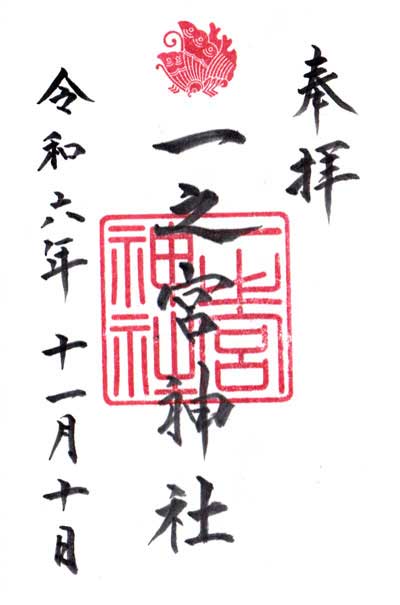 奉拝
一之宮神社
一之宮神社
令和六年 十一月十日